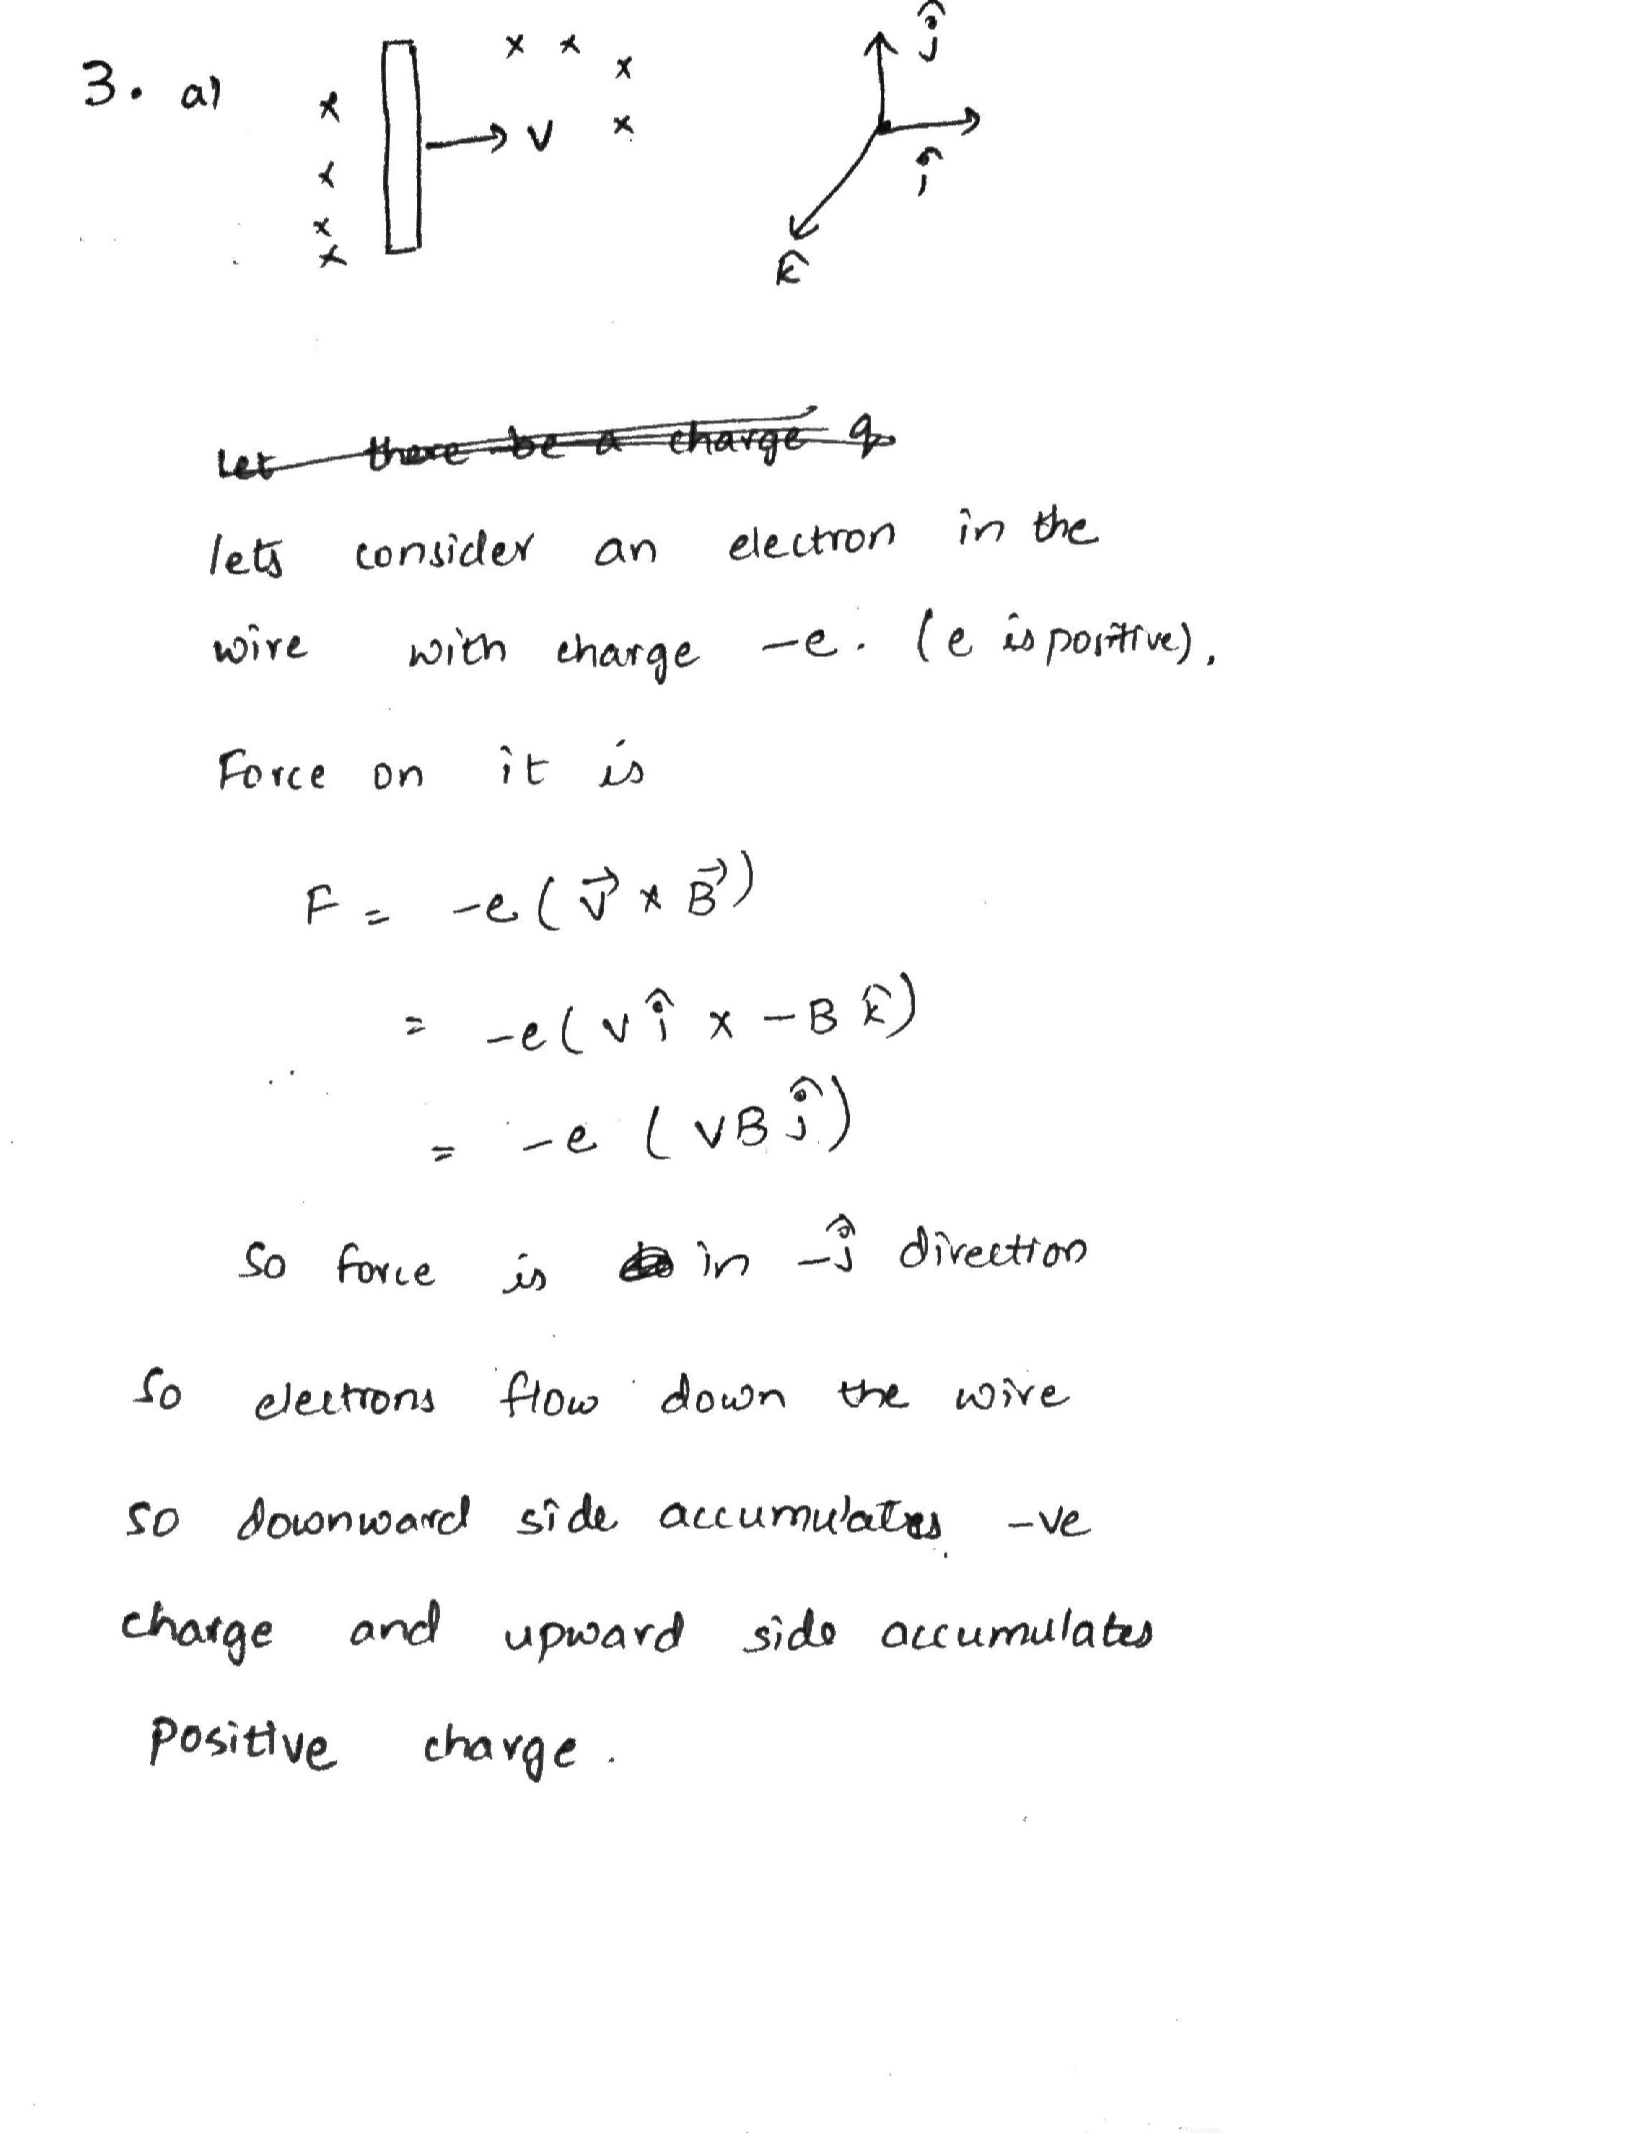 3. a)
x x x x
x x x x
→ v
ĵ
î
k̂
Let there be a charge q
lets consider an electron in the
wire with charge -e. (e is positive).
Force on it is
F = -e(v⃗ × B⃗)
= -e(v î x -B k̂)
= -e (vB ĵ)
So force is in -ĵ direction
So electrons flow down the wire
so downward side accumulates -ve
charge and upward side accumulates
positive charge.